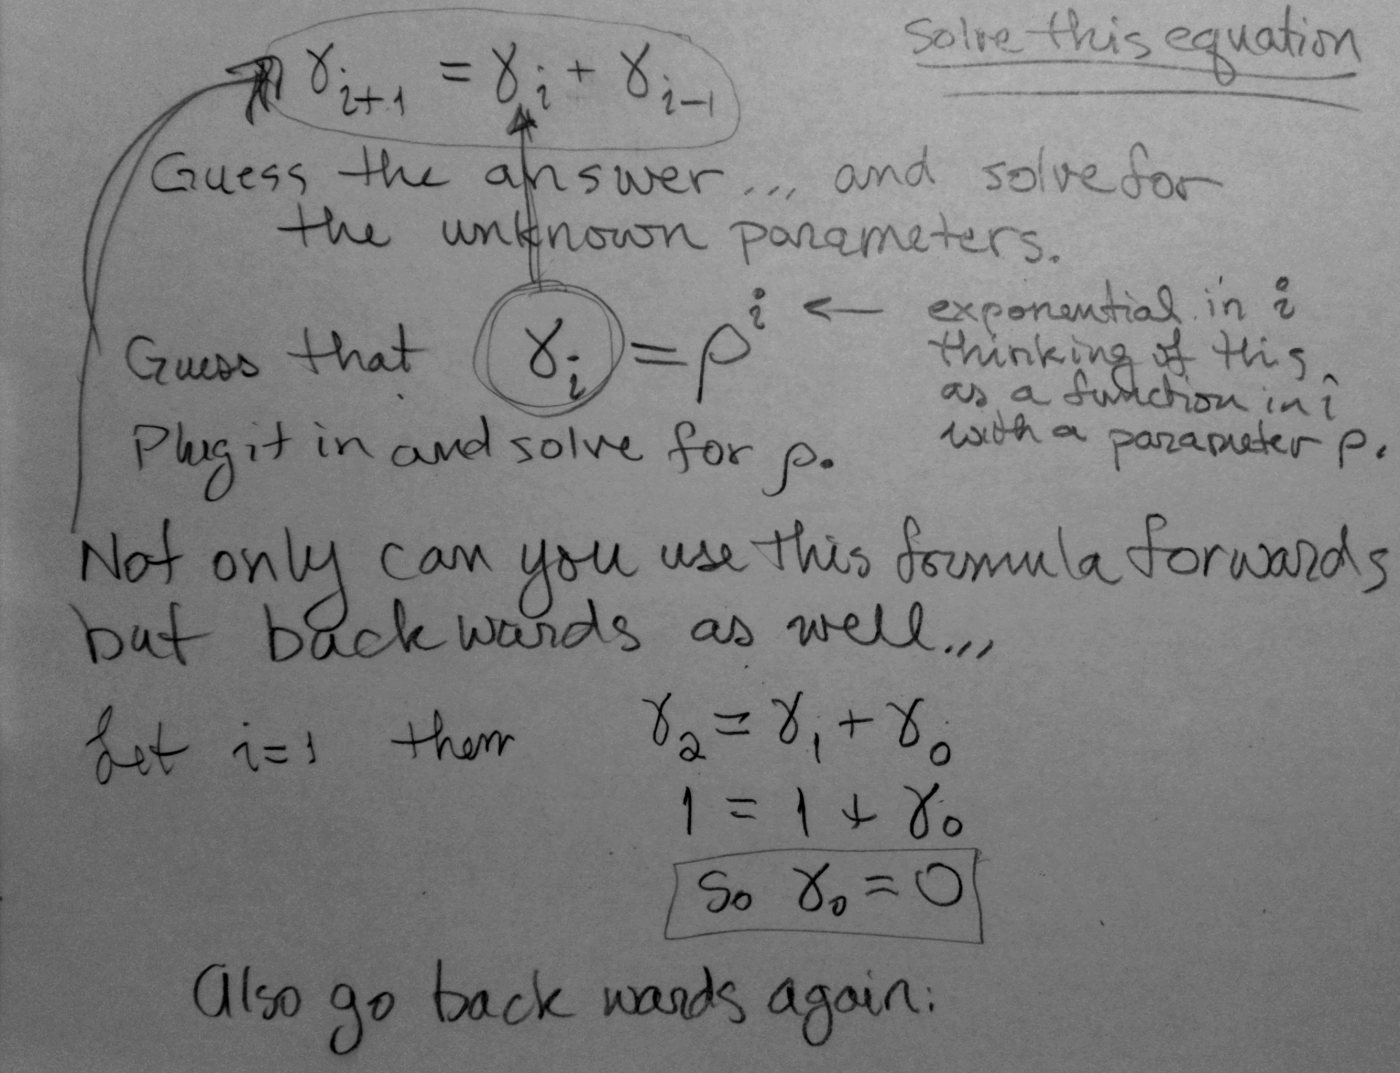 Solve this equation
γ_{i+1} = γ_i + γ_{i-1}
Guess the answer... and solve for
the unknown parameters.
Guess that γ_i = ρ^i ← exponential in i
thinking of this
as a function in i
with a parameter ρ.
Plug it in and solve for ρ.
Not only can you use this formula forwards
but backwards as well...
Let i=1 then γ_2 = γ_1 + γ_0
1 = 1 + γ_0
So γ_0 = 0
Also go back wards again: